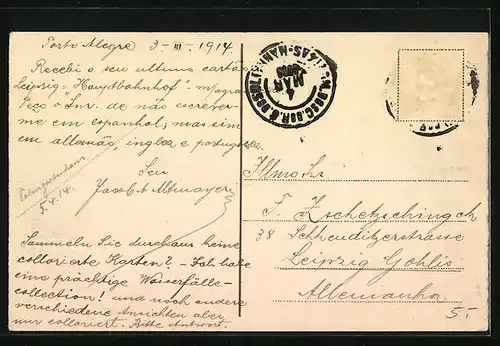 Porto Alegre 3-III-1914.
Recebi o seu ultimo cartão
Leipzig = Hauptbahnhof"
Peço o Snr. de não escrever-
me em espanhol; mas sim
em allemão, inglez e portuguez.
Seu
Jacob A Altmayer
5.4.14.
Sammeln Sie durchaus keine
collorierte Karten? - Ich habe
eine prächtige Wasserfälle-
collection! und noch andere
verschiedene Ansichten aber
nur colloriert. Bitte Antwort.
4
MAR
Illmo Sr.
F. Zschetzschingck
38 Schkeuditzerstrasse
Leipzig Gohlis
Allemanha
5.-